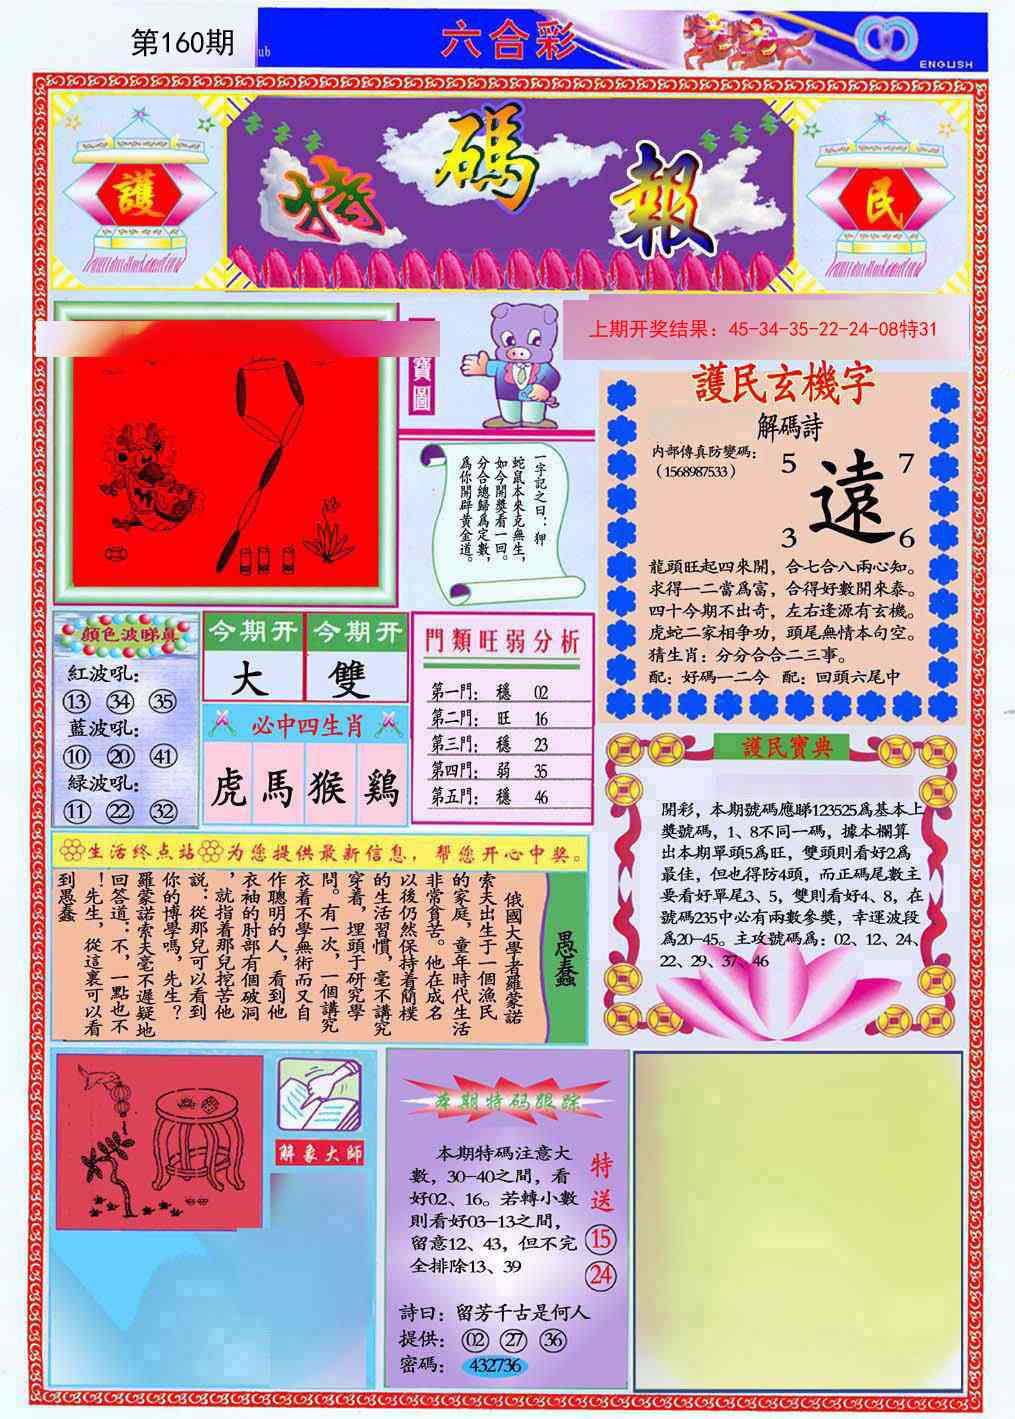 第160期
ub
六合彩
ENGLISH
護
特
碼
報
民
上期开奖结果：45-34-35-22-24-08特31
寶圖
一字記之曰：狎
蛇鼠本來克無生，
如今開獎看一回。
分合總歸爲定數，
爲你開辟黄金道。
護民玄機字
解碼詩
内部傳真防變碼：
（1568987533）
5 7
遠
3 6
龍頭旺起四來開，合七合八兩心知。
求得一二當爲富，合得好數開來泰。
四十今期不出奇，左右逢源有玄機。
虎蛇二家相争功，頭尾無情本句空。
猜生肖：分分合合二三事。
配：好碼一二今 配：回頭六尾中
顔色波睇真
紅波吼：
13 34 35
藍波吼：
10 20 41
緑波吼：
11 22 32
今期开 今期开
大 雙
必中四生肖
虎 馬 猴 鷄
門類旺弱分析
第一門： 穩 02
第二門： 旺 16
第三門： 穩 23
第四門： 弱 35
第五門： 穩 46
護民寶典
開彩，本期號碼應睇123525爲基本上
獎號碼，1、8不同一碼，據本欄算
出本期單頭5爲旺，雙頭則看好2爲
最佳，但也得防4頭，而正碼尾數主
要看好單尾3、5，雙則看好4、8，在
號碼235中必有兩數参獎，幸運波段
爲20-45。主攻號碼爲：02、12、24、
22、29、37、46
生活终点站 为您提供最新信息，帮您开心中奖。
愚蠢
俄國大學者羅蒙諾
索夫出生于一個漁民
的家庭，童年時代生活
非常貧苦。他在成名
以後仍然保持着簡樸
的生活習慣，毫不講究
穿着，埋頭于研究學
問。有一次，一個講究
衣着不學無術而又自
作聰明的人，看到他
衣袖的肘部有個破洞
，就指着那兒挖苦他
説：從那兒可以看到
你的博學嗎，先生？
羅蒙諾索夫毫不遲疑地
回答道：不，一點也不
！先生，從這裏可以看
到愚蠢
解象大師
本期特码跟踪
本期特碼注意大
數，30-40之間，看
好02、16。若轉小數
則看好03-13之間，
留意12、43，但不完
全排除13、39
特送
15
24
詩曰：留芳千古是何人
提供：02 27 36
密碼：432736